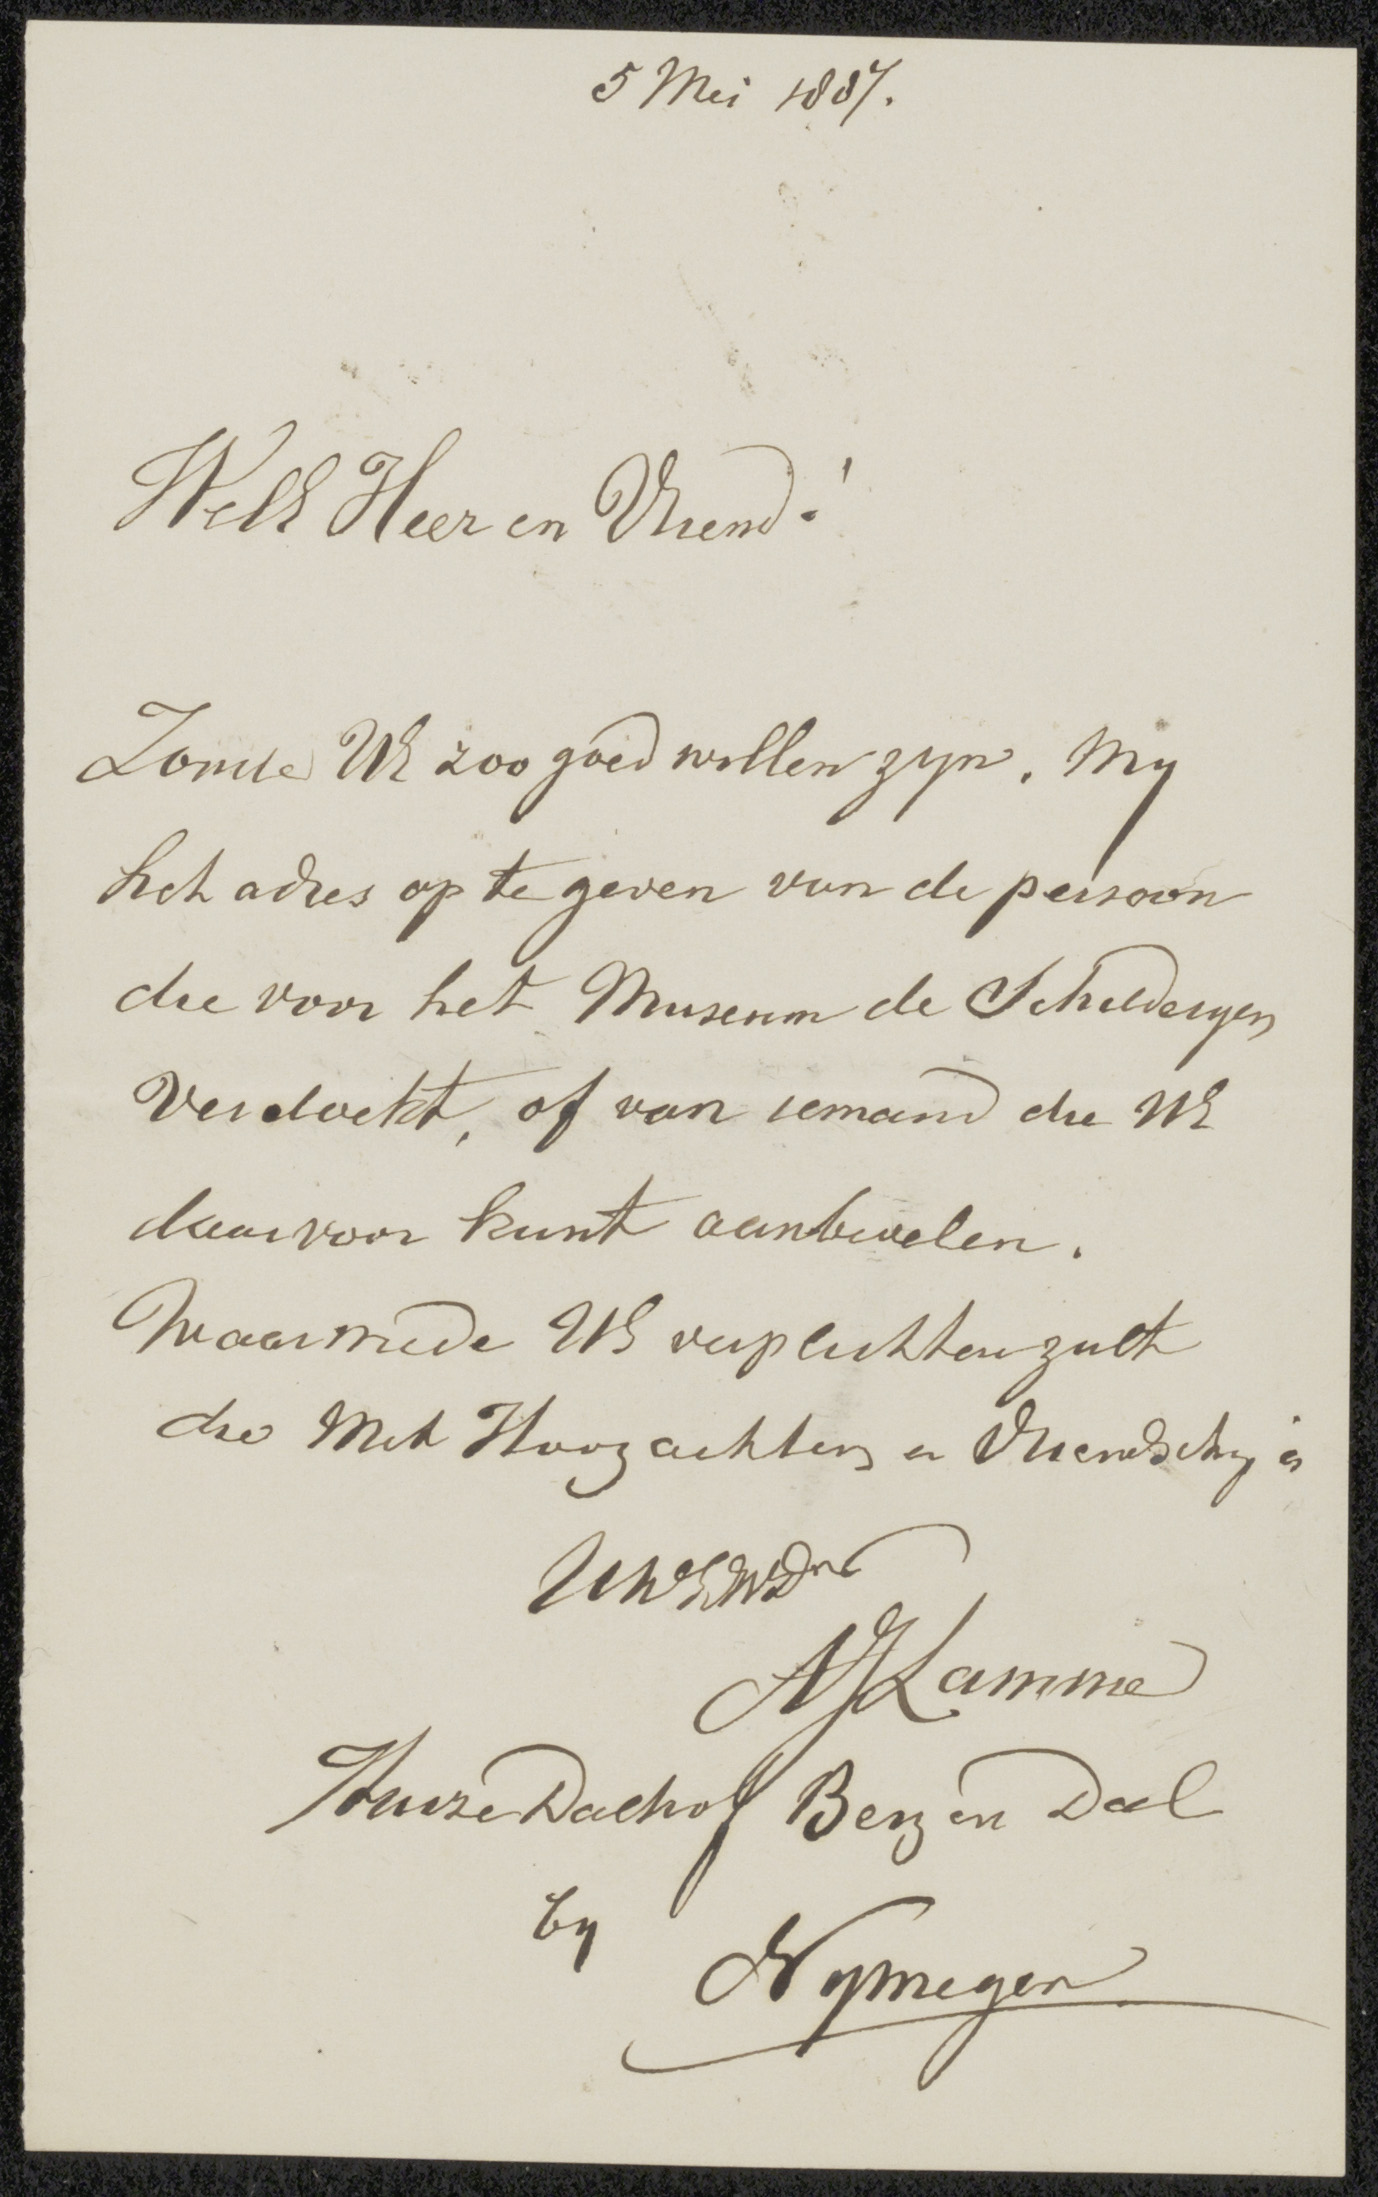 5 Mei 1887.
WelE Heer en Vriend!
Zoude UE zoo goed willen zyn, my
het adres op te geven van de persoon
die voor het Museum de Schilderyen
Verdoekt, of van iemand die UE
daarvoor kunt aanbevelen.
Waarmede UE verplichten zult
die Met Hoogachting en Vriendschap is
AJLamme
Huize Dalhof Berg en Dal
by
Nymegen